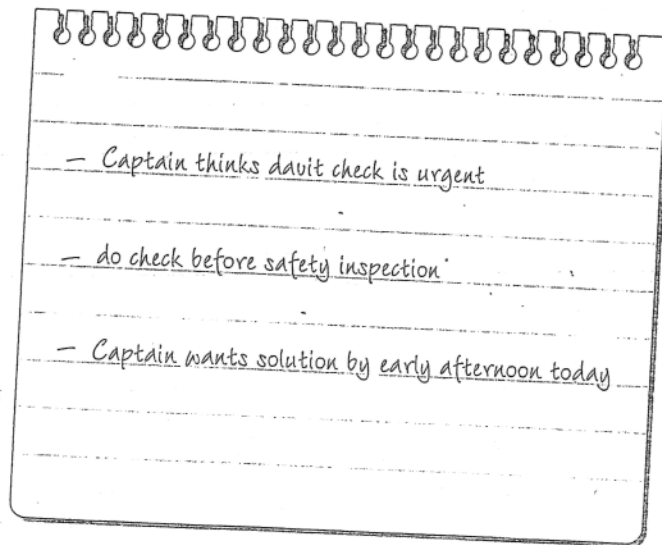 — Captain thinks davit check is urgent
— do check before safety inspection
— Captain wants solution by early afternoon today